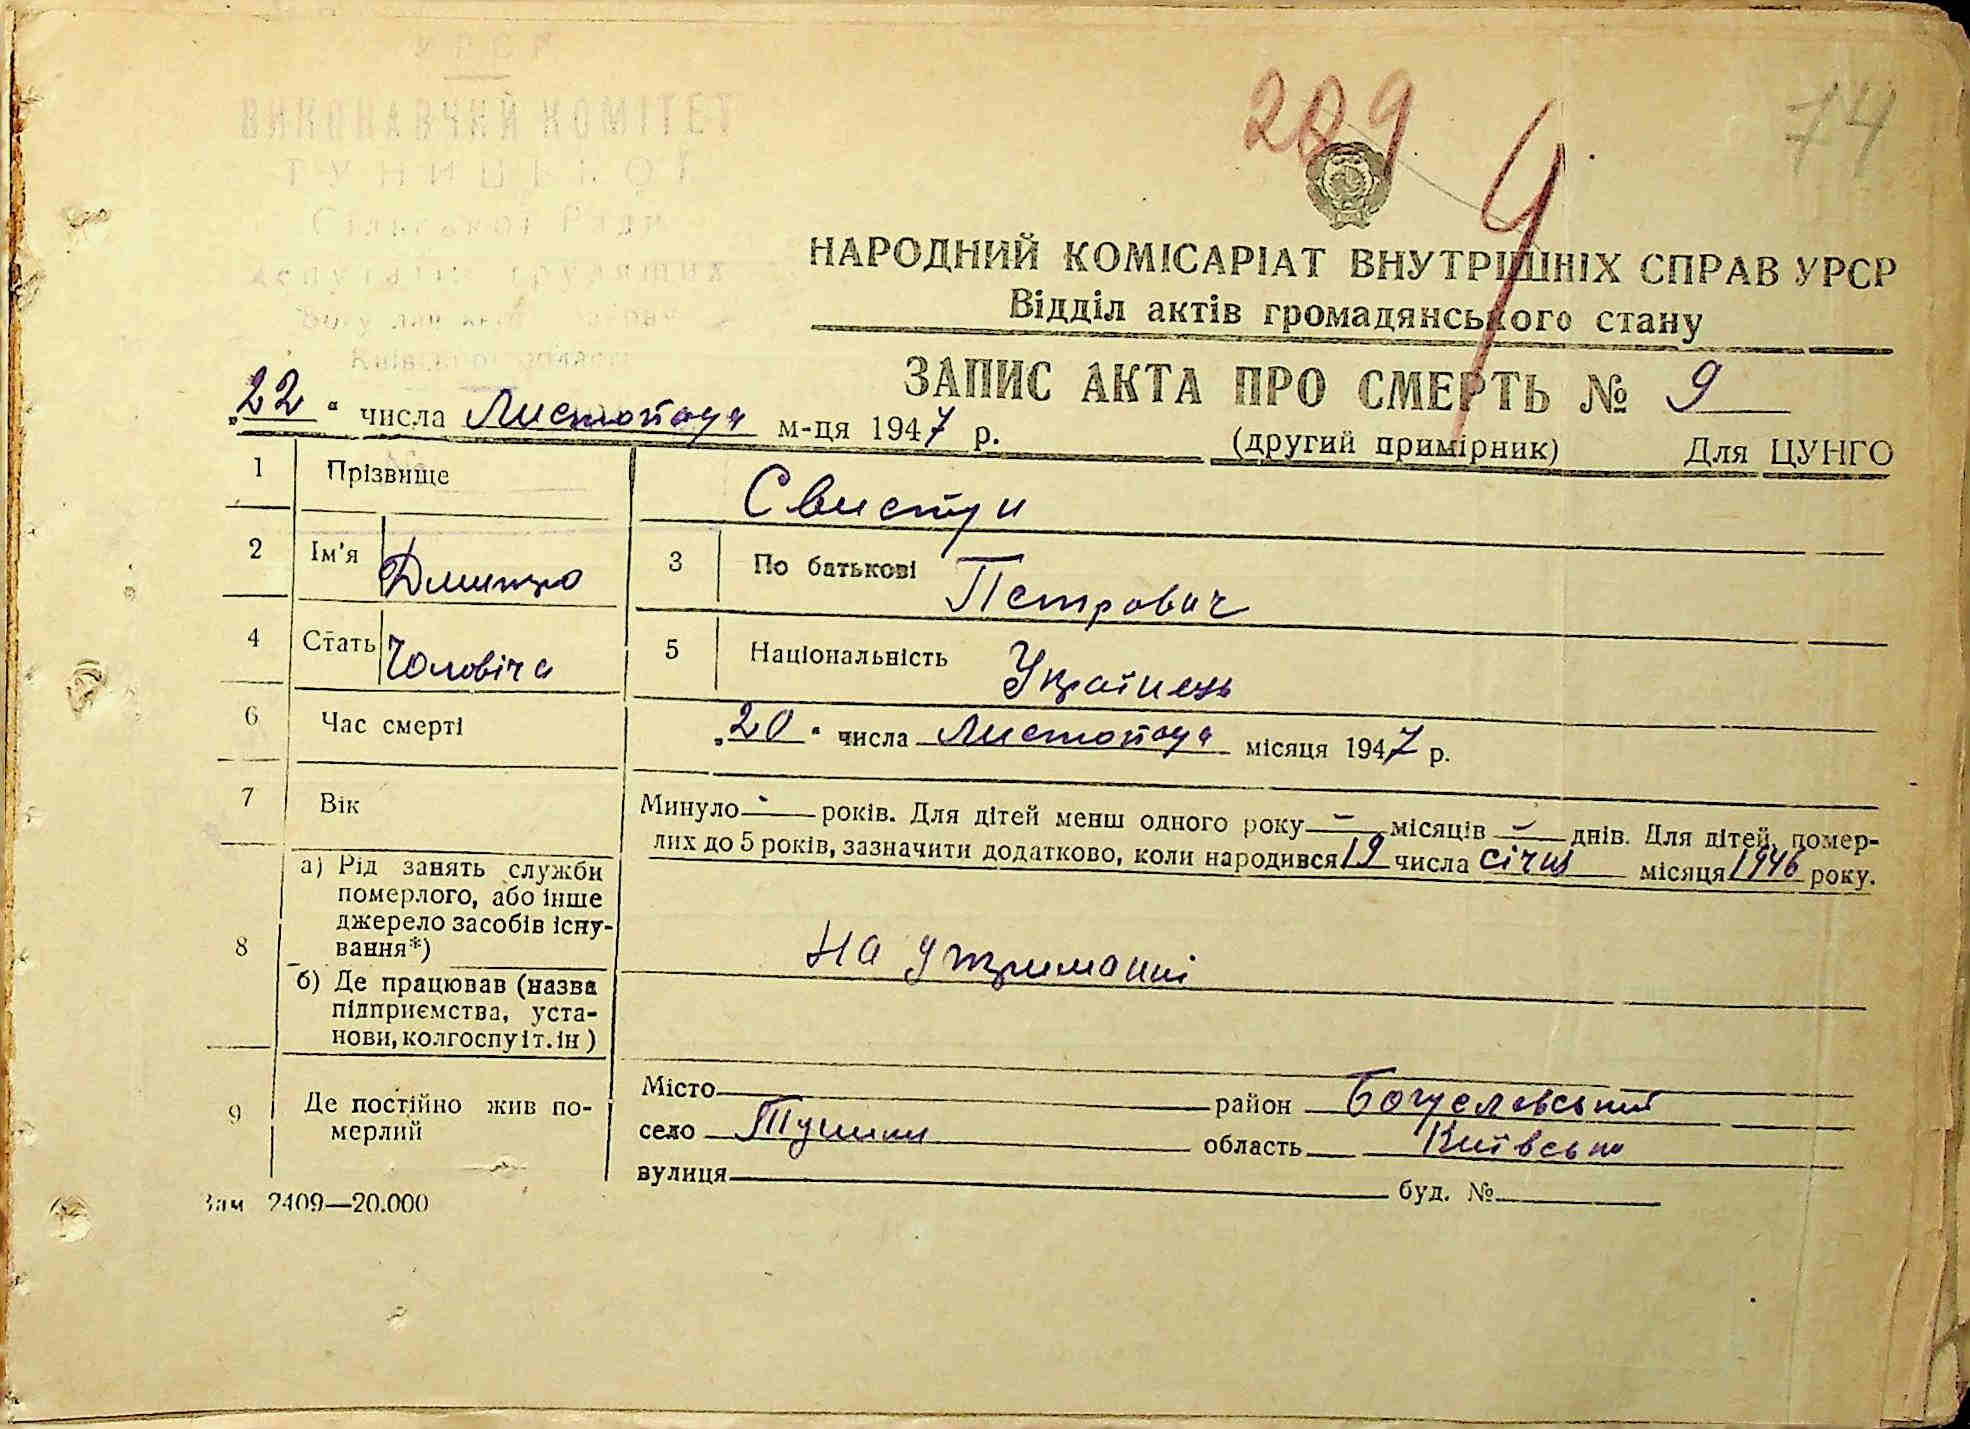 УРСР
ВИКОНАВЧИЙ КОМІТЕТ
ТУНИЦЬКОЇ
Сільської Ради
депутатів трудящих
Київської області
289
74
НАРОДНИЙ КОМІСАРІАТ ВНУТРІШНІХ СПРАВ УРСР
Відділ актів громадянського стану
ЗАПИС АКТА ПРО СМЕРТЬ № 9
„22“ числа Листопада м-ця 1947 р.
(другий примірник) Для ЦУНГО
1 Прізвище Свистун
2 Ім'я Дмитро 3 По батькові Петрович
4 Стать Чоловіча 5 Національність Українець
6 Час смерті „20“ числа Листопада місяця 1947 р.
7 Вік Минуло - років. Для дітей менш одного року - місяців - днів. Для дітей, помер-
лих до 5 років, зазначити додатково, коли народився 19 числа січня місяця 1946 року.
8 а) Рід занять служби
померлого, або інше
джерело засобів існу-
вання*)
На утриманні
б) Де працював (назва
підприємства, уста-
нови, колгоспу і т. ін)
9 Де постійно жив по-
мерлий
Місто район Богуславський
село Туники область Київська
вулиця буд. №
Зам 2409—20.000